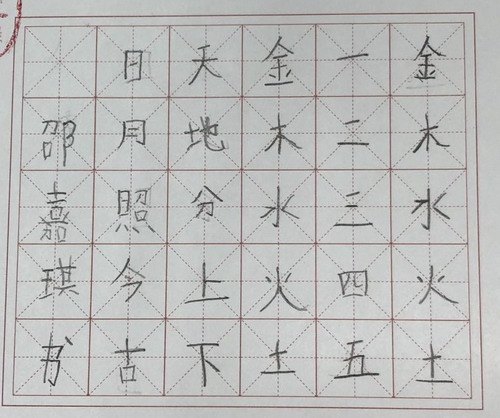 金木水火土
一二三四五
金木水火土
天地分上下
日月照今古
邵嘉琪书